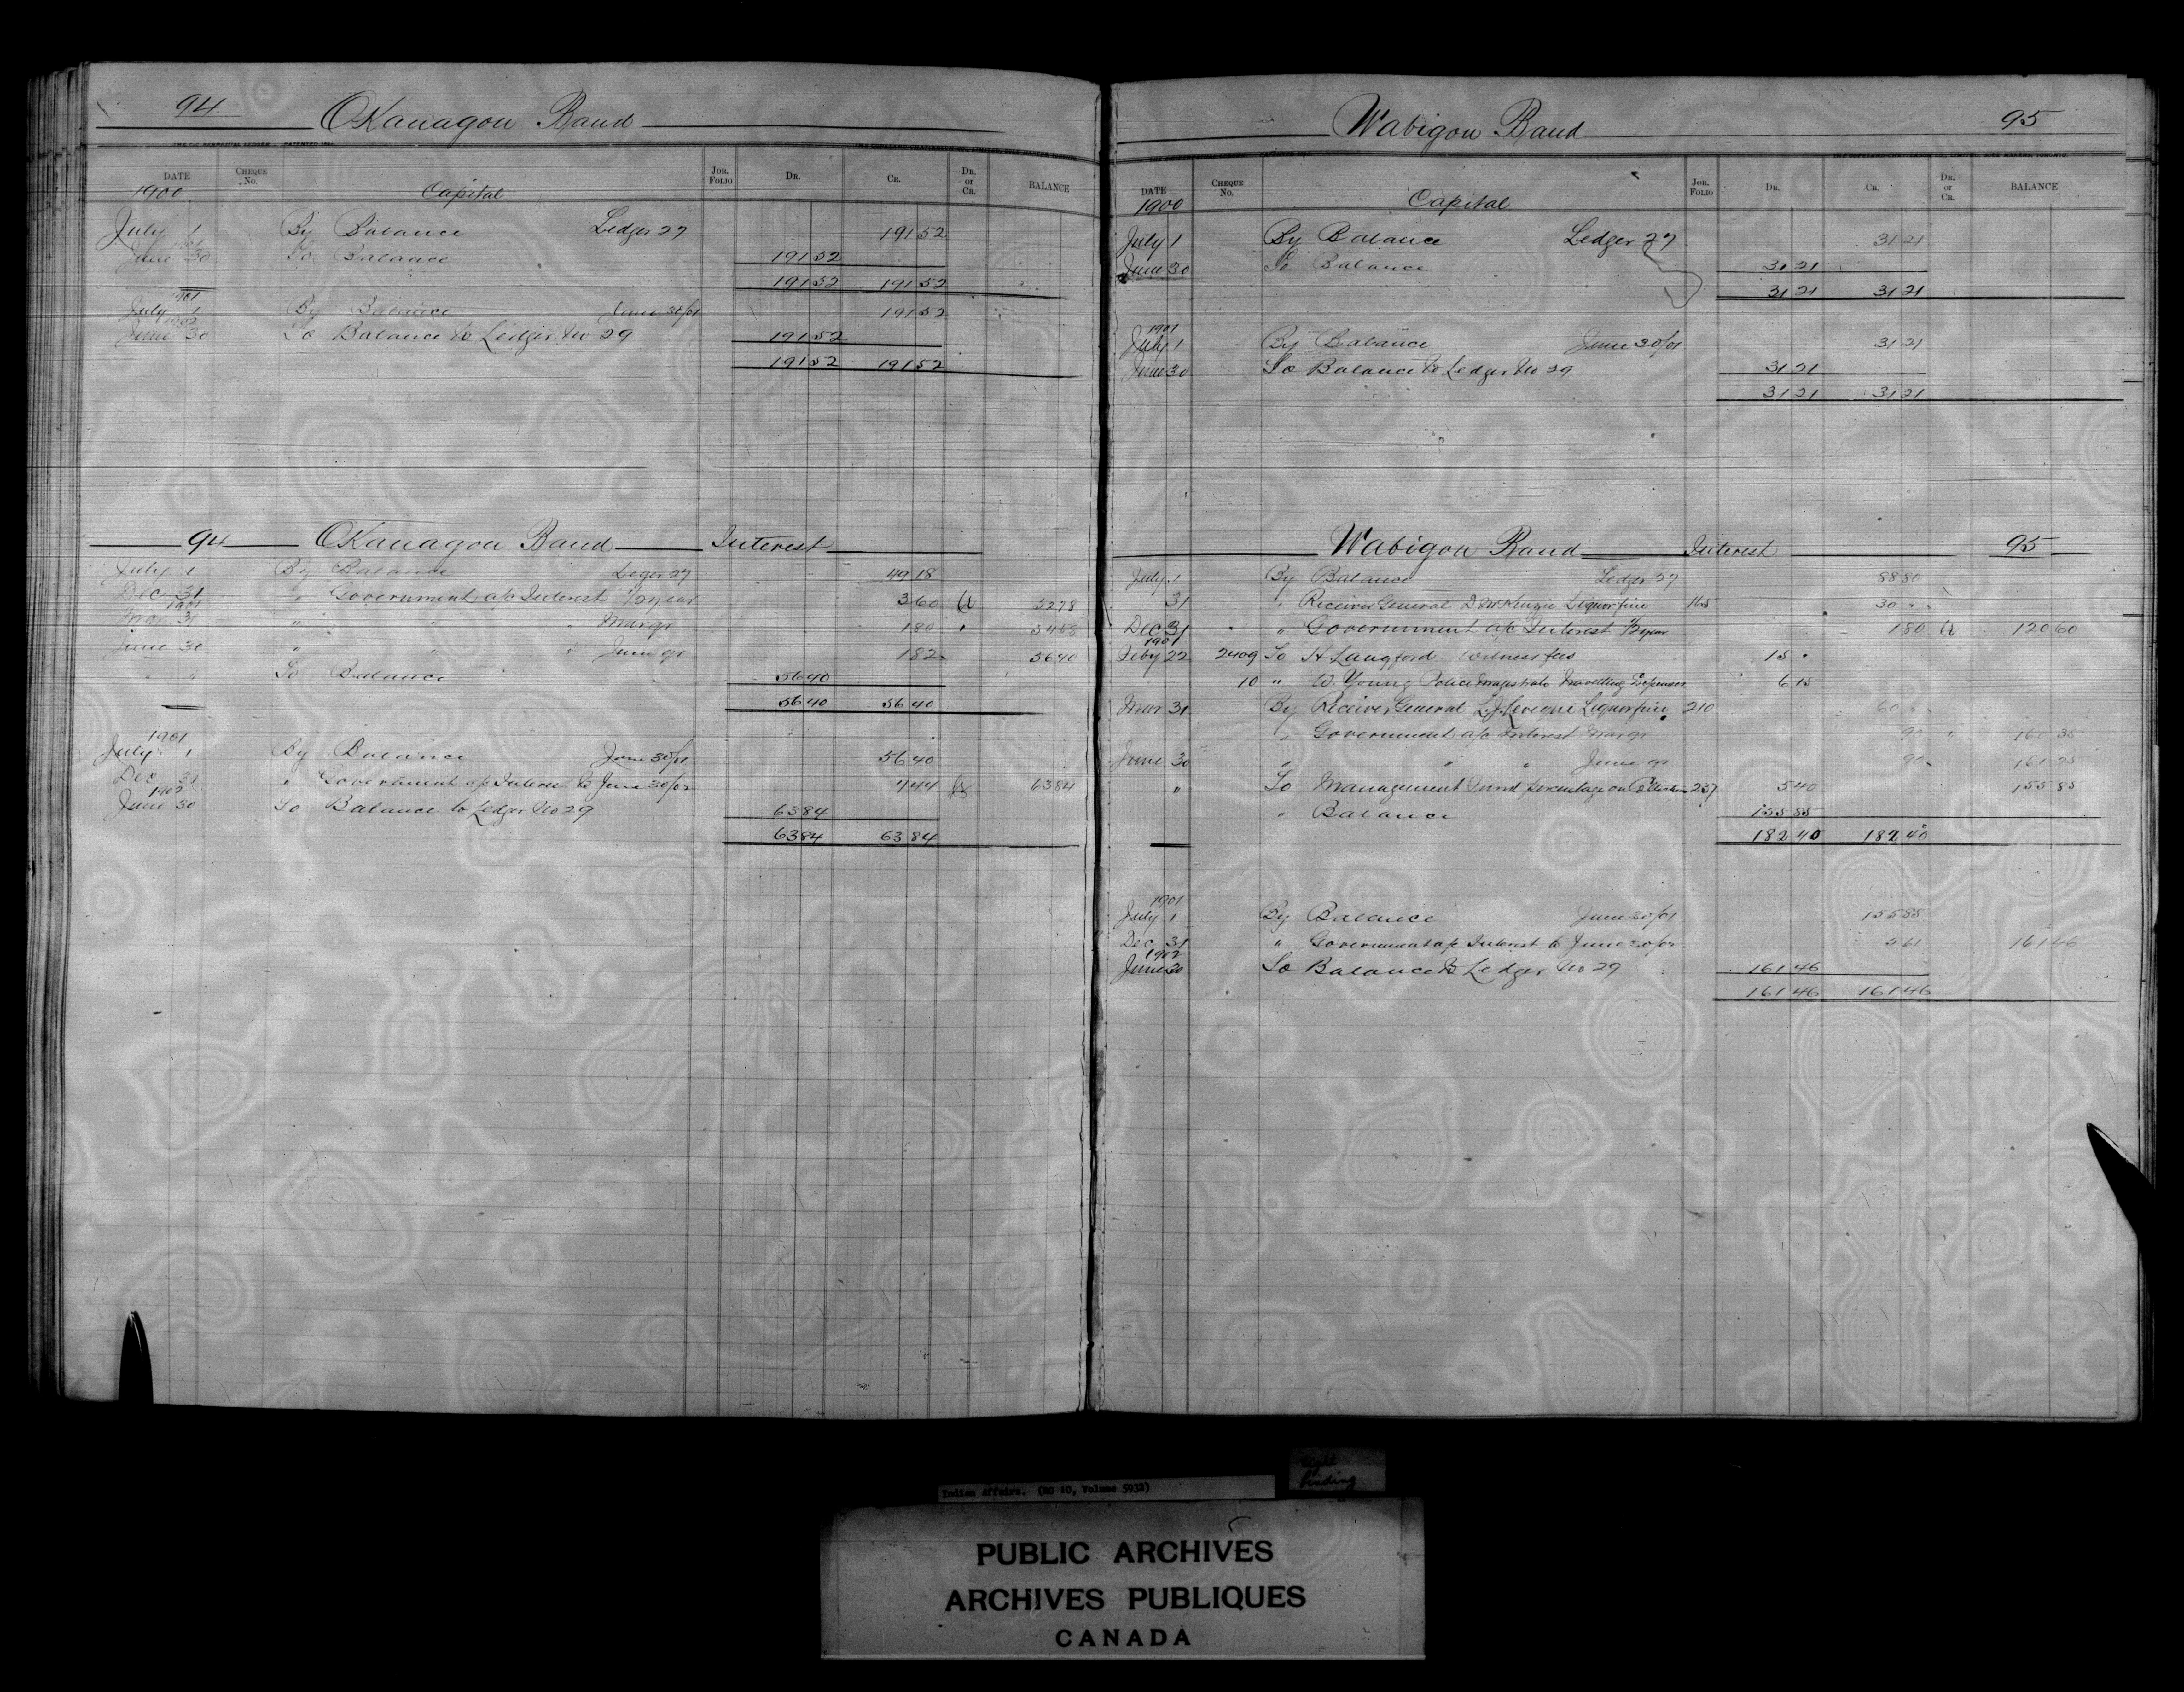 94 Okanagon Band
DATE CHEQUE No. JOR. FOLIO DR. CR. DR. or CR. BALANCE
1900 Capital
July 1 By Balance Ledger 27 191 52
1901
June 30 To Balance 191 52
191 52 191 52
1901
July 1 By Balance June 30/01 191 52
1902
June 30 To Balance to Ledger No 29 191 52
191 52 191 52
94 Okanagon Band Interest
July 1 By Balance Leger 27 49 18
Dec 31 " Government a/c Interest 1/2 year 3 60 Cr 52 78
1901
Mar 31 " " " Mar qr 1 80 " 54 58
June 30 " " " June qr 1 82 56 40
" " To Balance 56 40
56 40 56 40
1901
July 1 By Balance June 30/01 56 40
Dec 31 " Government a/c Interest to June 30/02 7 44 63 84
1902
June 30 To Balance to Ledger No 29 63 84
63 84 63 84
Wabigon Band 95
DATE CHEQUE No. JOR. FOLIO DR. CR. DR. or CR. BALANCE
1900 Capital
July 1 By Balance Ledger 27 31 21
June 30 To Balance 31 21
31 21 31 21
1901
July 1 By Balance June 30/01 31 21
June 30 To Balance to Ledger No 29 31 21
31 21 31 21
Wabigon Band Interest 95
July 1 By Balance Ledger 27 88 80
31 " Receiver General D McKenzie Liquor fine 165 30 "
Dec 31 " Government a/c Interest 1/2 year 1 80 Cr 120 60
1901
Feby 22 2409 To H Langford Witness fees 15 "
10 " W. Young Police Magistrate Travelling Expenses 6 15
Mar 31 By Receiver General L.J. Leveque Liquor fine 210 60 "
" Government a/c Interest Mar qr 90 " 160 35
June 30 " " " June qr 90 161 25
" To Management Fund percentage on Collection 237 5 40 155 85
" Balance 155 85
182 40 182 40
1901
July 1 By Balance June 30/01 155 85
Dec 31 " Government a/c Interest to June 30/02 5 61 161 46
1902
June 30 To Balance to Ledger No 29 161 46
161 46 161 46
Indian Affairs. (RG 10, Volume 5932)
Tight
Binding
PUBLIC ARCHIVES
ARCHIVES PUBLIQUES
CANADA